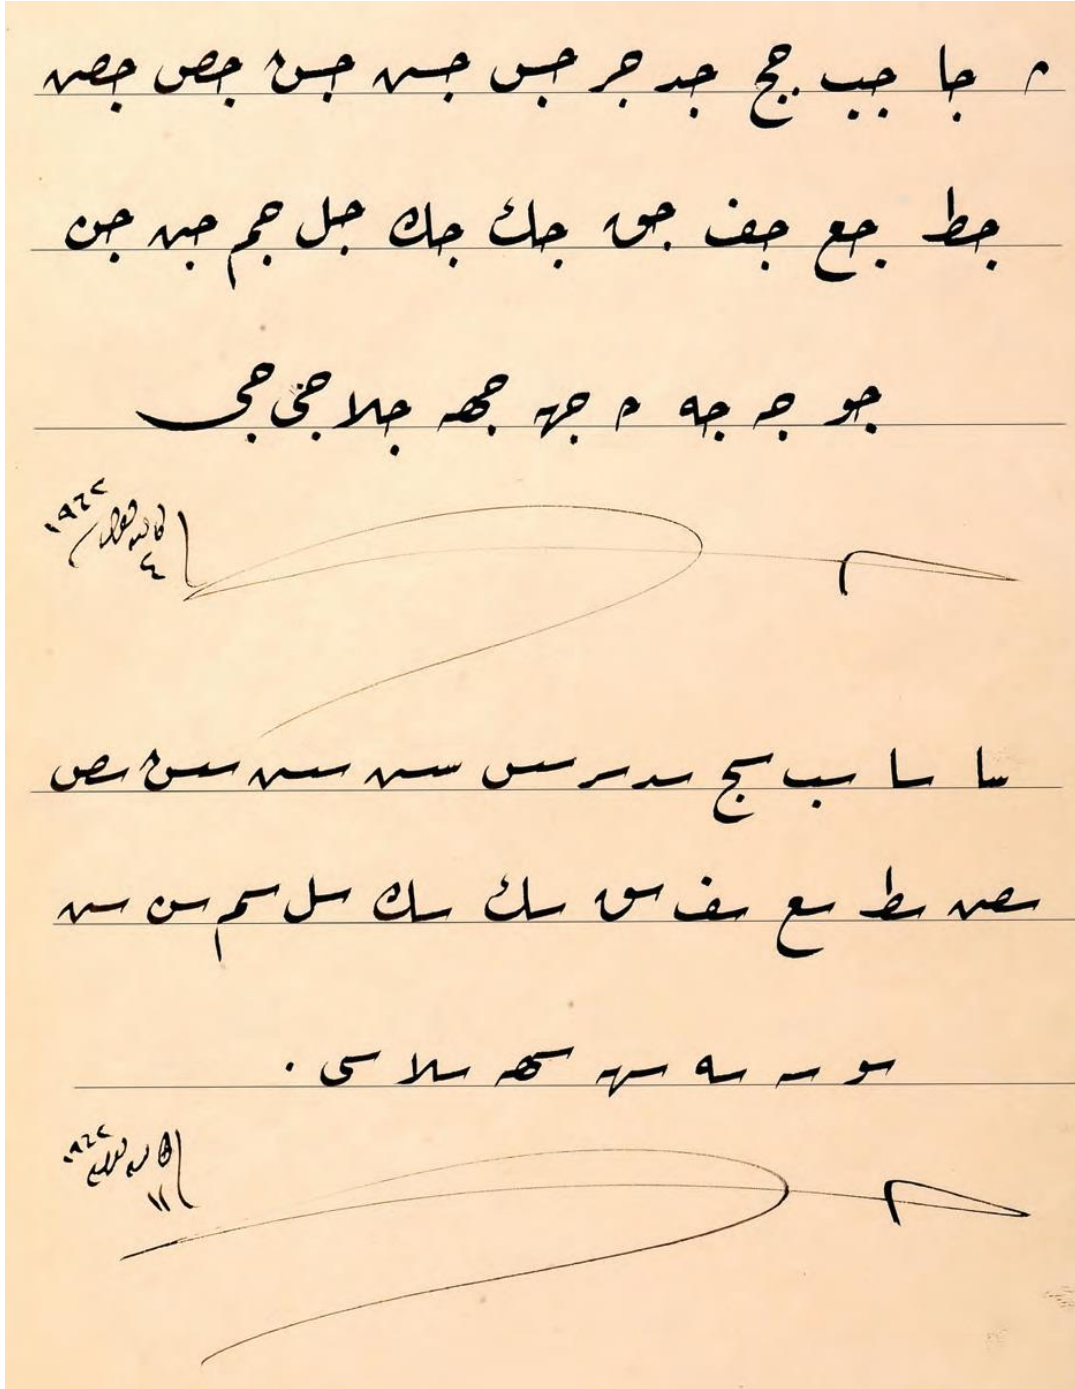 حا جا جب جج جد جر جس جس جس جص جص
جط جع جف جق جك جك جل جم جن جن
جو جه جه جه جهه جلا جى جى
١٩٦٢
٤
سا سا سب سج سد سر سس سس سس سس سص
سص سط سع سف سق سك سك سل سم سن سن
سو سه سه سه سهه سلا سى .
١٩٦٢
١١